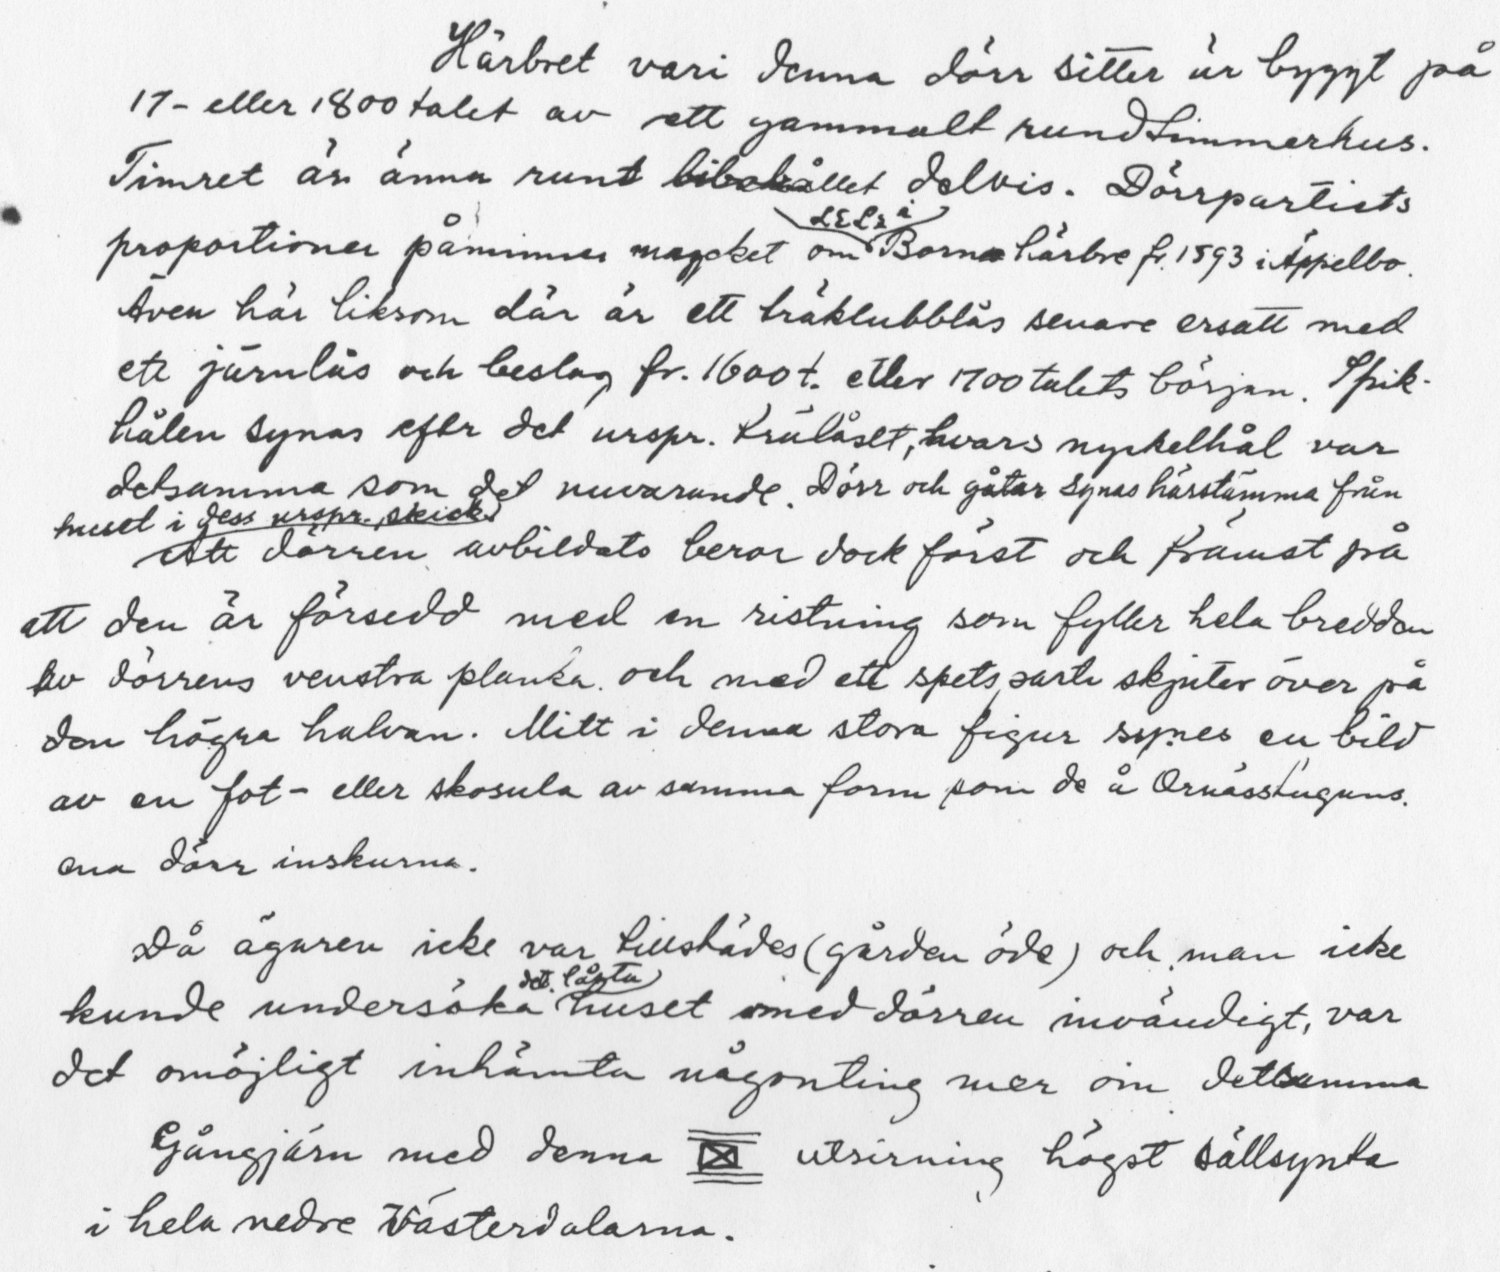 Härbret vari denna dörr sitter är byggt på
17- eller 1800 talet av ett gammalt rundtimmerhus.
Timret är ännu runt bibehållet delvis. Dörrpartiets
proportioner påminner mycket om Borna härbre fr. 1593 i Äppelbo.
Även här liksom där är ett träklubblås senare ersatt med
ett järnlås och beslag fr. 1600 t. eller 1700 talets början. Spik-
hålen synas efter det urspr. trälåset, hvars nyckelhål var
detsamma som det nuvarande. Dörr och gåtar synas härstamma från
huset i dess urspr. skick.
Att dörren avbildats beror dock först och främst på
att den är försedd med en ristning som fyller hela bredden
av dörrens venstra planka och med ett spets parti skjuter över på
den högra halvan. Mitt i denna stora figur synes en bild
av en fot- eller skosula av samma form som de å Ornässtugans
ena dörr inskurna.
Då ägaren icke var tillstädes (gården öde) och man icke
kunde undersöka det låsta huset med dörren invändigt, var
det omöjligt inhämta någonting mer om detsamma
Gångjärn med denna utsirning högst sällsynta
i hela nedre Västerdalarna.